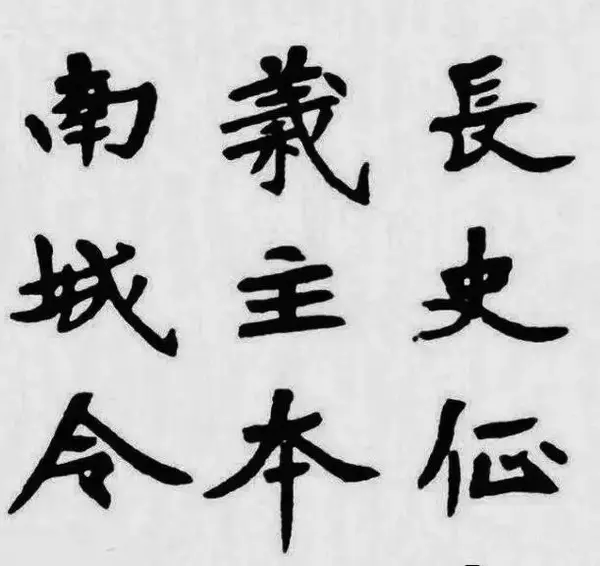 長史佂
義主本
南城令